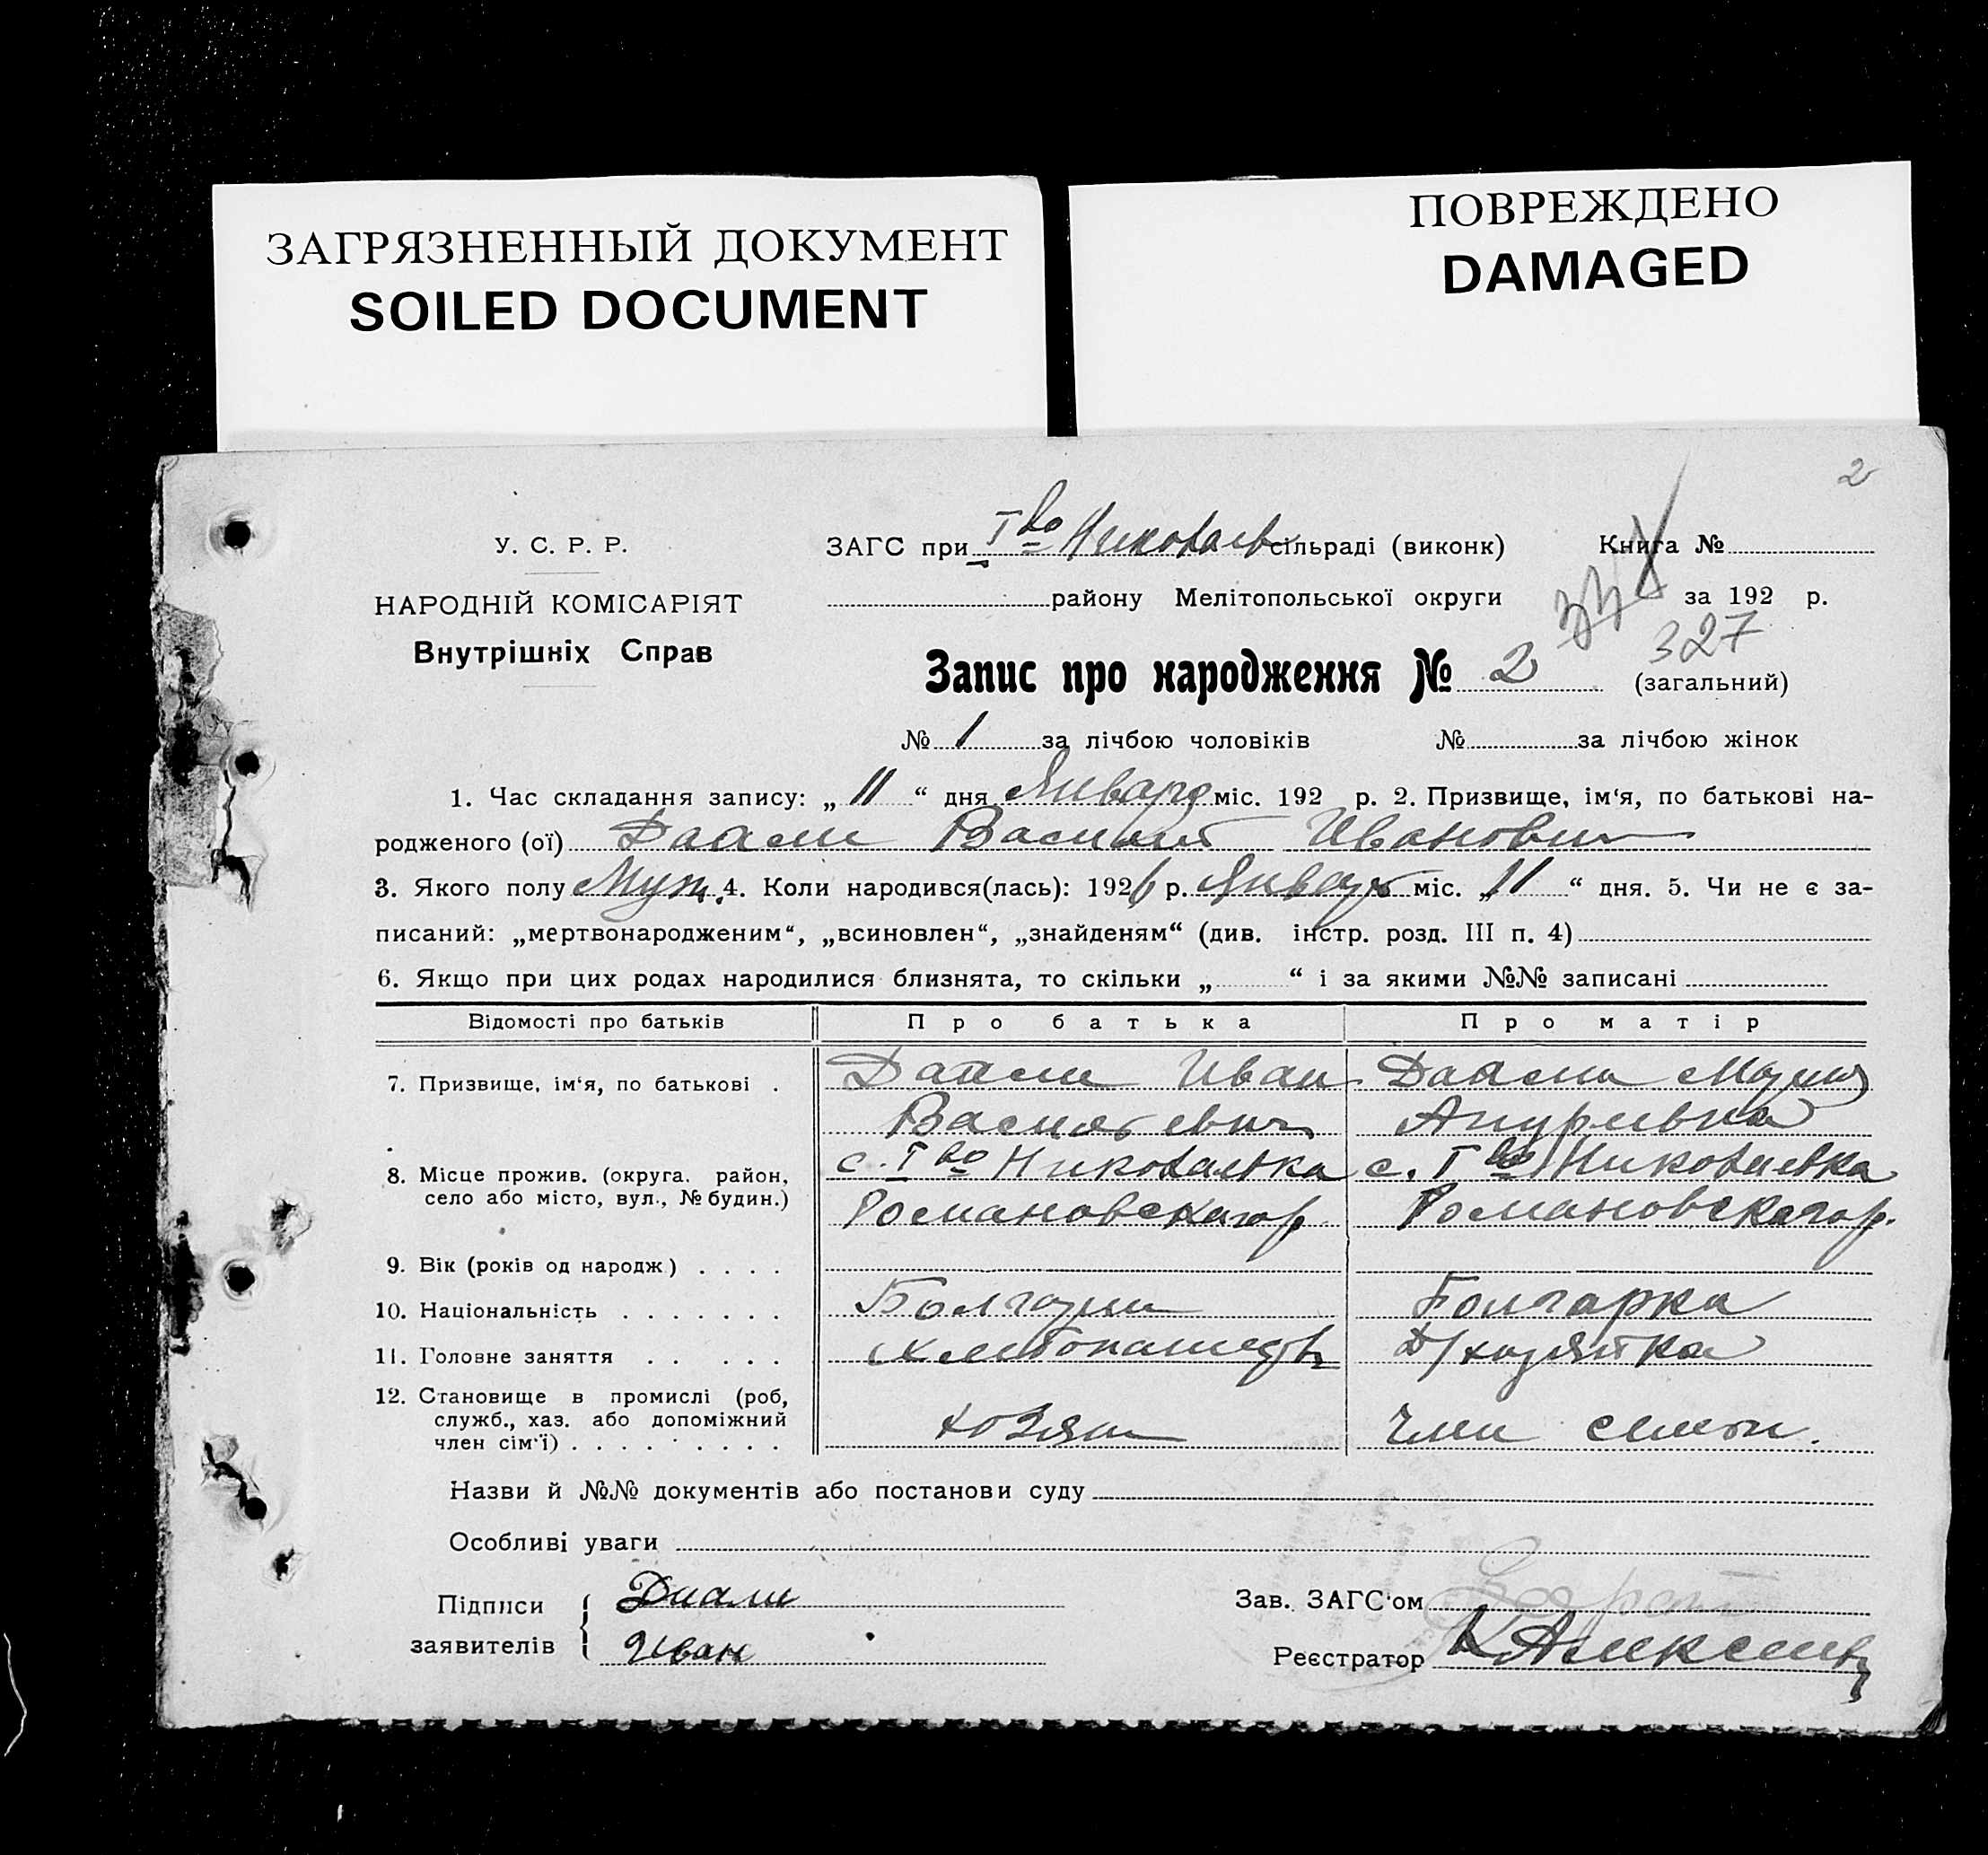 ЗАГРЯЗНЕННЫЙ ДОКУМЕНТ
SOILED DOCUMENT
ПОВРЕЖДЕНО
DAMAGED
2
У. С. Р. Р.
НАРОДНІЙ КОМІСАРІЯТ
Внутрішніх Справ
ЗАГС при І во Николаев сільраді (виконк)
Книга №
району Мелітопольської округи
за 192 р.
327
Запис про народження № 2
(загальний)
№ 1 за лічбою чоловіків № за лічбою жінок
1. Час складання запису: „ 11 “ дня Января міс. 192 р. 2. Призвище, ім‘я, по батькові на-
родженого (ої) Василий Иванович
3. Якого полу Муж. 4. Коли народився(лась): 1926 р. Января міс. „ 11 “ дня. 5. Чи не є за-
писаний: „мертвонародженим“, „всиновлен“, „знайденям“ (див. інстр. розд. III п. 4)
6. Якщо при цих родах народилися близнята, то скільки „ “ і за якими №№ записані
Відомості про батьків Про батька Про матір
7. Призвище, ім‘я, по батькові . Иван Мария
Васильевич
8. Місце прожив. (округа. район, с. І во Николаевка с. І во Николаевка
село або місто, вул., № будин.) Романовского р. Романовского р.
9. Вік (років од народж) . . . .
10. Національність . . . . . . . Болгарин Болгарка
11. Головне заняття . . . . . Хлебопашец Д/хозяйка
12. Становище в промислі (роб,
служб., хаз. або допоміжний
член сім‘ї) . . . . . . . . . хозяин член семьи.
Назви й №№ документів або постанови суду
Особливі уваги
Підписи
заявителів Иван
Зав. ЗАГС‘ом
Реєстратор